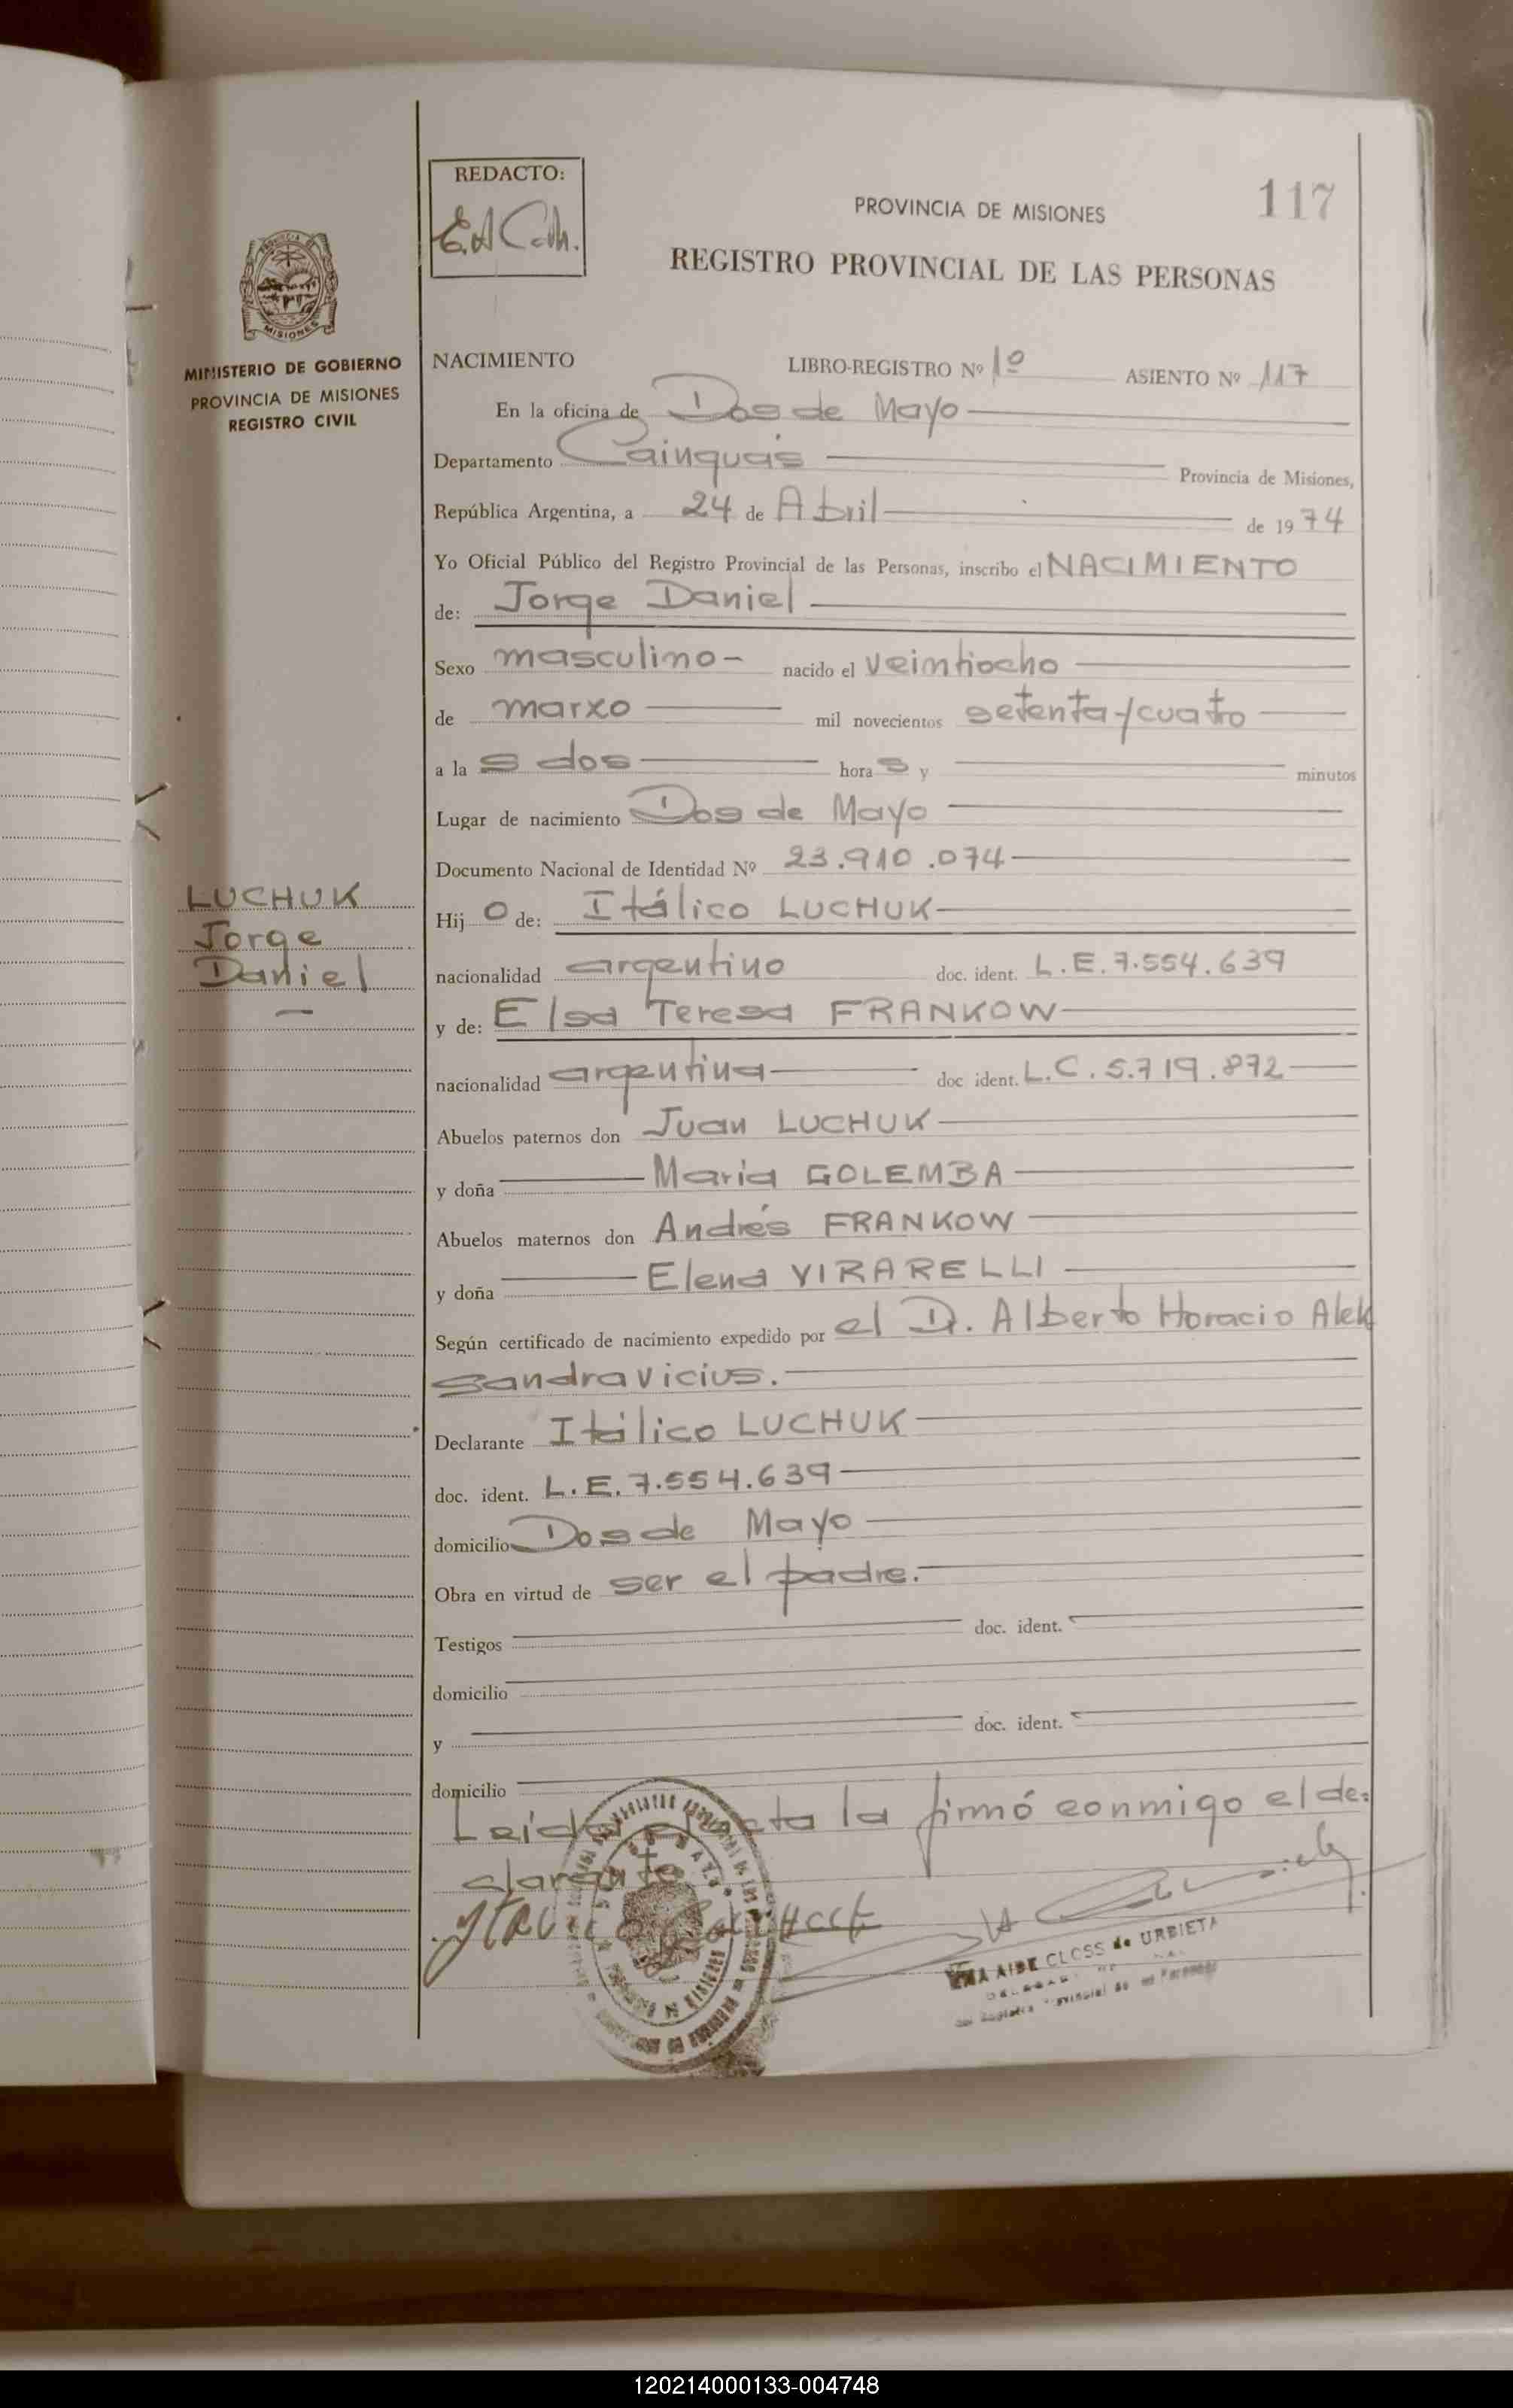 REDACTO:
117
PROVINCIA DE MISIONES
REGISTRO PROVINCIAL DE LAS PERSONAS
MISIONES
MINISTERIO DE GOBIERNO
PROVINCIA DE MISIONES
REGISTRO CIVIL
NACIMIENTO LIBRO-REGISTRO Nº 1º ASIENTO Nº 117
En la oficina de Dos de Mayo
Departamento Cainguás Provincia de Misiones,
República Argentina, a 24 de Abril de 1974
Yo Oficial Público del Registro Provincial de las Personas, inscribo el NACIMIENTO
de: Jorge Daniel
Sexo masculino - nacido el veintiocho
de marzo mil novecientos setenta y cuatro
a la s dos hora s y minutos
Lugar de nacimiento Dos de Mayo
Documento Nacional de Identidad Nº 23.910.074
LUCHUK
Jorge
Daniel
Hij o de: Itálico LUCHUK
nacionalidad argentino doc. ident. L.E. 7.554.639
y de: Elsa Teresa FRANKOW
nacionalidad argentina doc ident. L.C. 5.719.872
Abuelos paternos don Juan LUCHUK
y doña Maria GOLEMBA
Abuelos maternos don Andrés FRANKOW
y doña Elena VIRARELLI
Según certificado de nacimiento expedido por el Dr. Alberto Horacio Alek
sandravicius.
Declarante Itálico LUCHUK
doc. ident. L.E. 7.554.639
domicilio Dos de Mayo
Obra en virtud de ser el padre.
Testigos doc. ident.
domicilio
y doc. ident.
domicilio
Leida el acta la firmó conmigo el de:
clarante
AIDE CLOSS de URBIETA
120214000133-004748